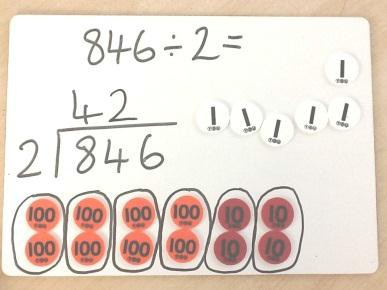 846÷2=
42
2 846
1
1 1 1 1 1
100 100 100 100 10 10
100 100 100 100 10 10